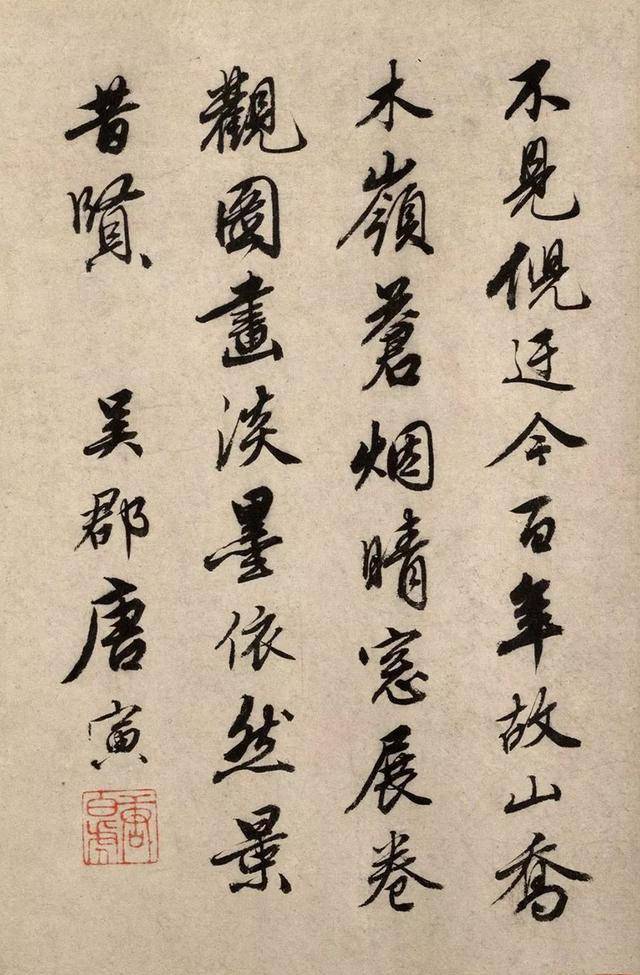 不見倪迂今百年故山喬
木嶺蒼烟晴窓展卷
觀圖畫淡墨依然景
昔賢 吴郡唐寅
唐白虎